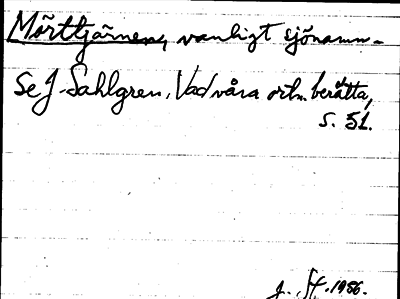 Mörttjärnen, vanligt sjönamn.
Se J. Sahlgren, Vad våra ortn. berätta,
s. 51.
J. St. 1956.